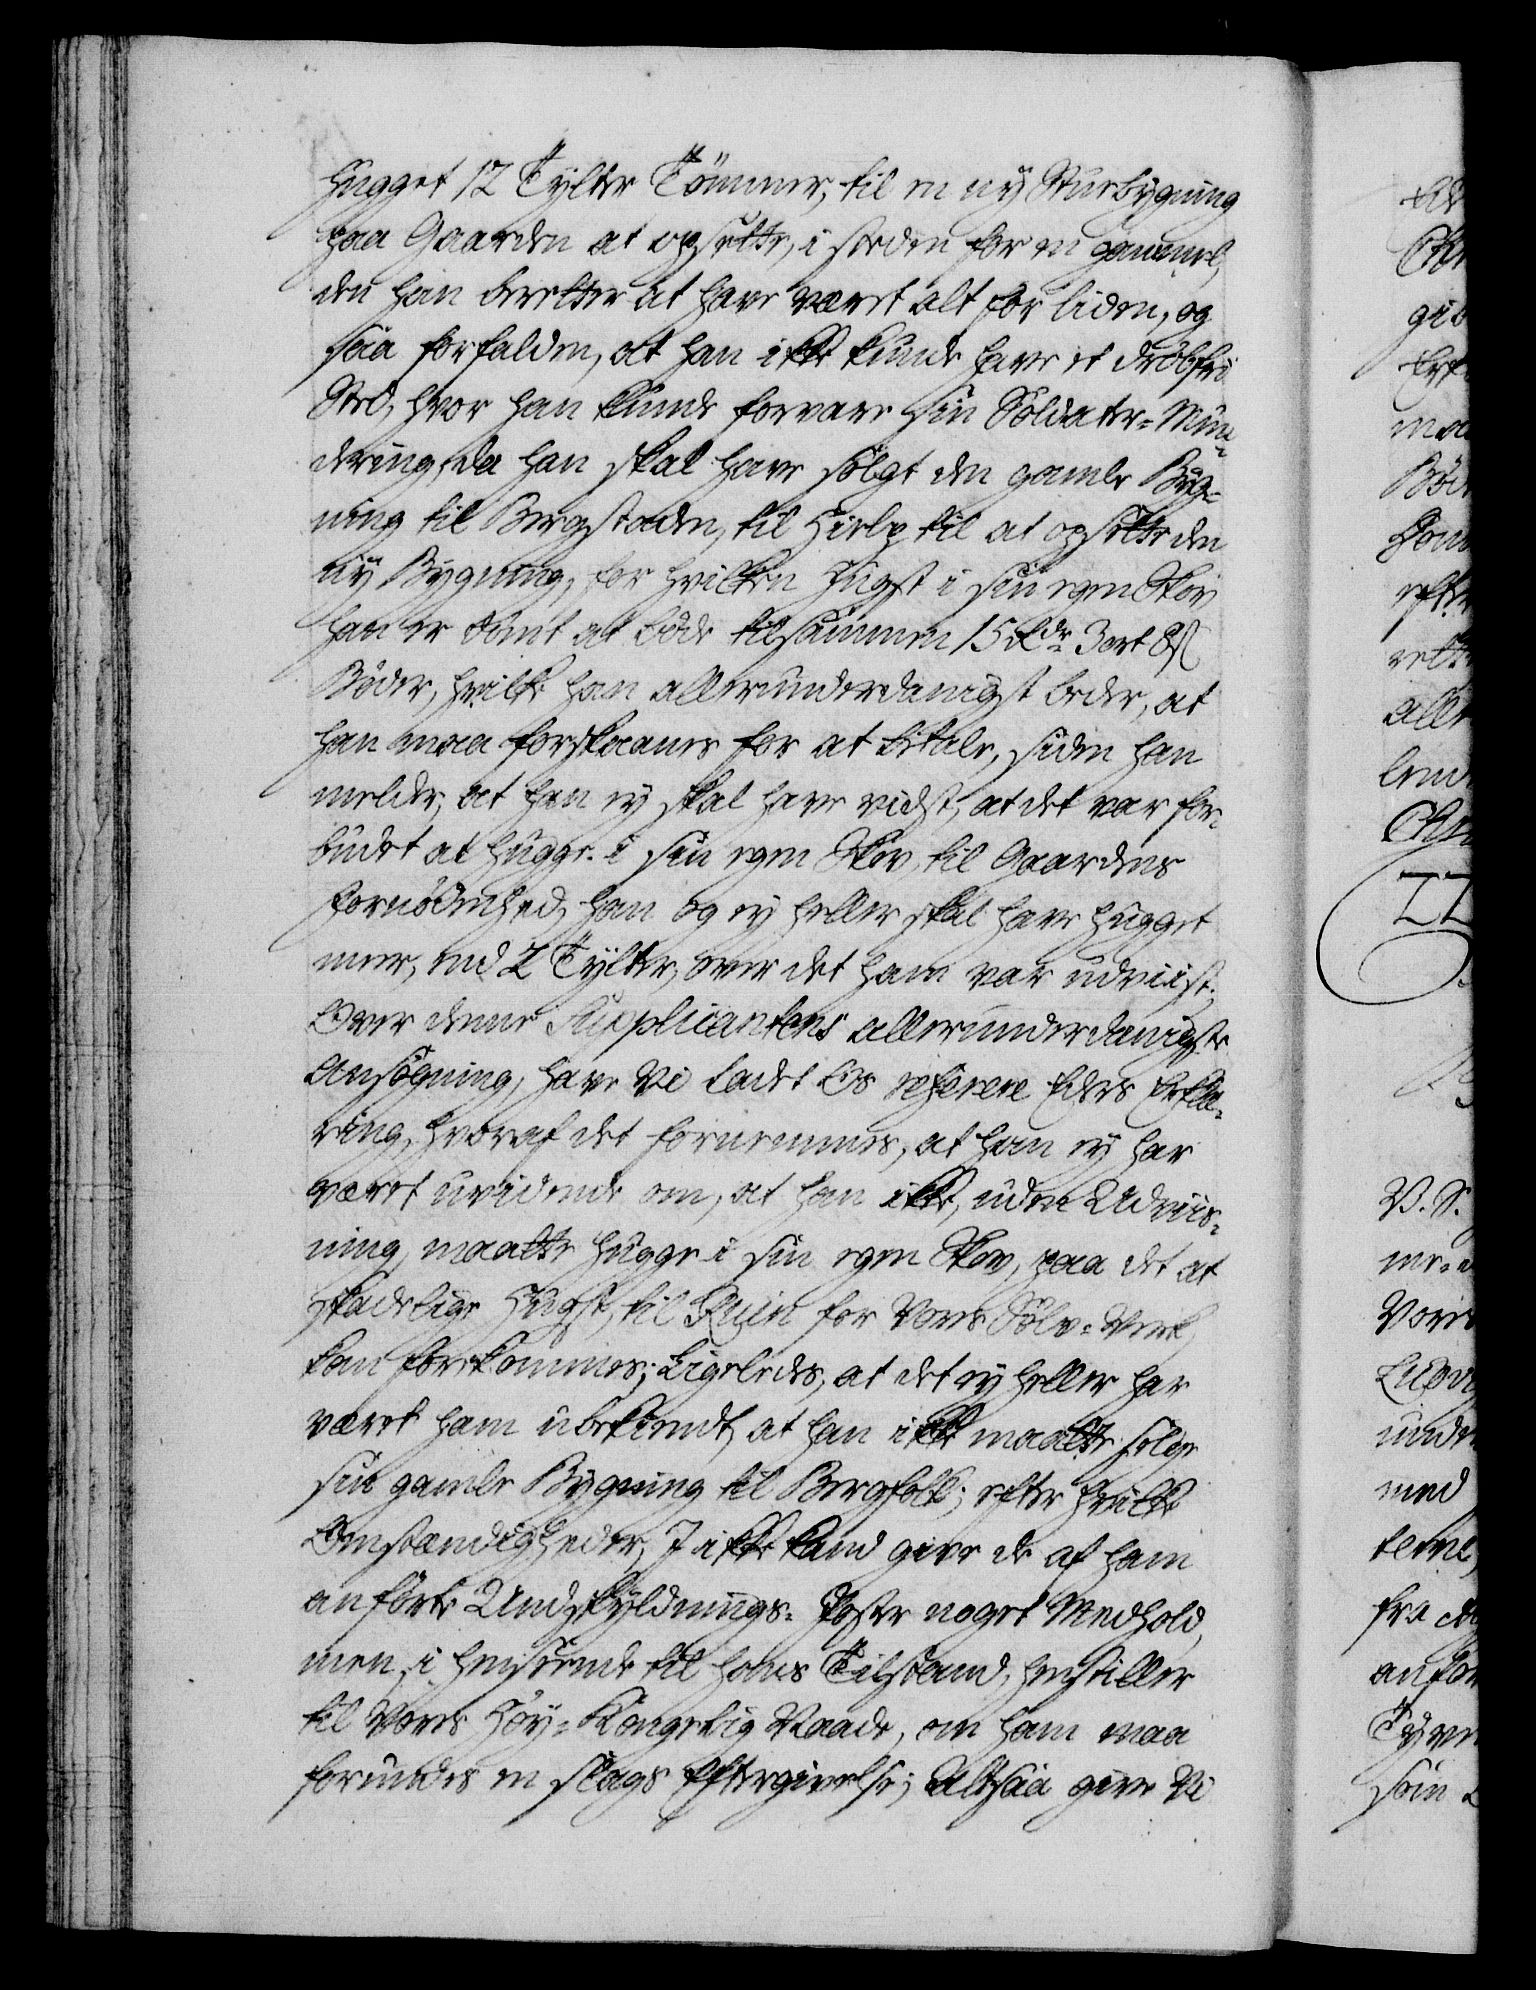 hugget 12 Tylter Tömmer, til en ny Stuebygning
paa Gaarden at opsette, i steden for en gammel,
den han beretter at have været alt for liden, og
saa forfalden, at han ikke kunde have et dröbfri
Sted, hvor han kunde forvare sin Soldater-Mun-
dering, da han skal have solgt den gamle Byg-
ning til Bergstaden, til Hielp til at opsette den
ny Bygning, for hvilken Hugst i sin egen Skov
han er dömt at böde tilsammen 15 Rdr 3 ort 8 s
Böder, hvilke han allerunderdanigst beder, at
han maa forskaanes for at betale, siden han
melder, at han ey skal have vidst, at det var for-
budet at hugge i sin egen Skov til Gaardens
Fornödenhed, han og ey heller skal have hugget
meer, end 2 Tylter, over det ham var udviist;
Over denne Supplicantens allerunderdanigste
Ansögning, have Vi ladet Os referere Eders Erklæ-
ring, hvoraf det fornemmes, at han ey har
været uvidende om, at han ikke, uden Udviis-
ning, maatte hugge i sin egen Skov, paa det at
skadelige Hugst, til Ruin for Vores Sölv-Verk,
kan forekommes; Ligeledes, at det ey heller har
været ham ubekiendt, at han ikke maatte selge
sin gamle Bygning til Bergfolk; efter hvilke
Omstændigheder, I ikke kand give de af ham
anförte Undskyldnings-Poster noget Medhold,
men, i henseende til hans Tilstand, henstiller
til Vores Höy-Kongelig Naade, om ham maa
forundes en slags Eftergivelse; Altsaa give Vi